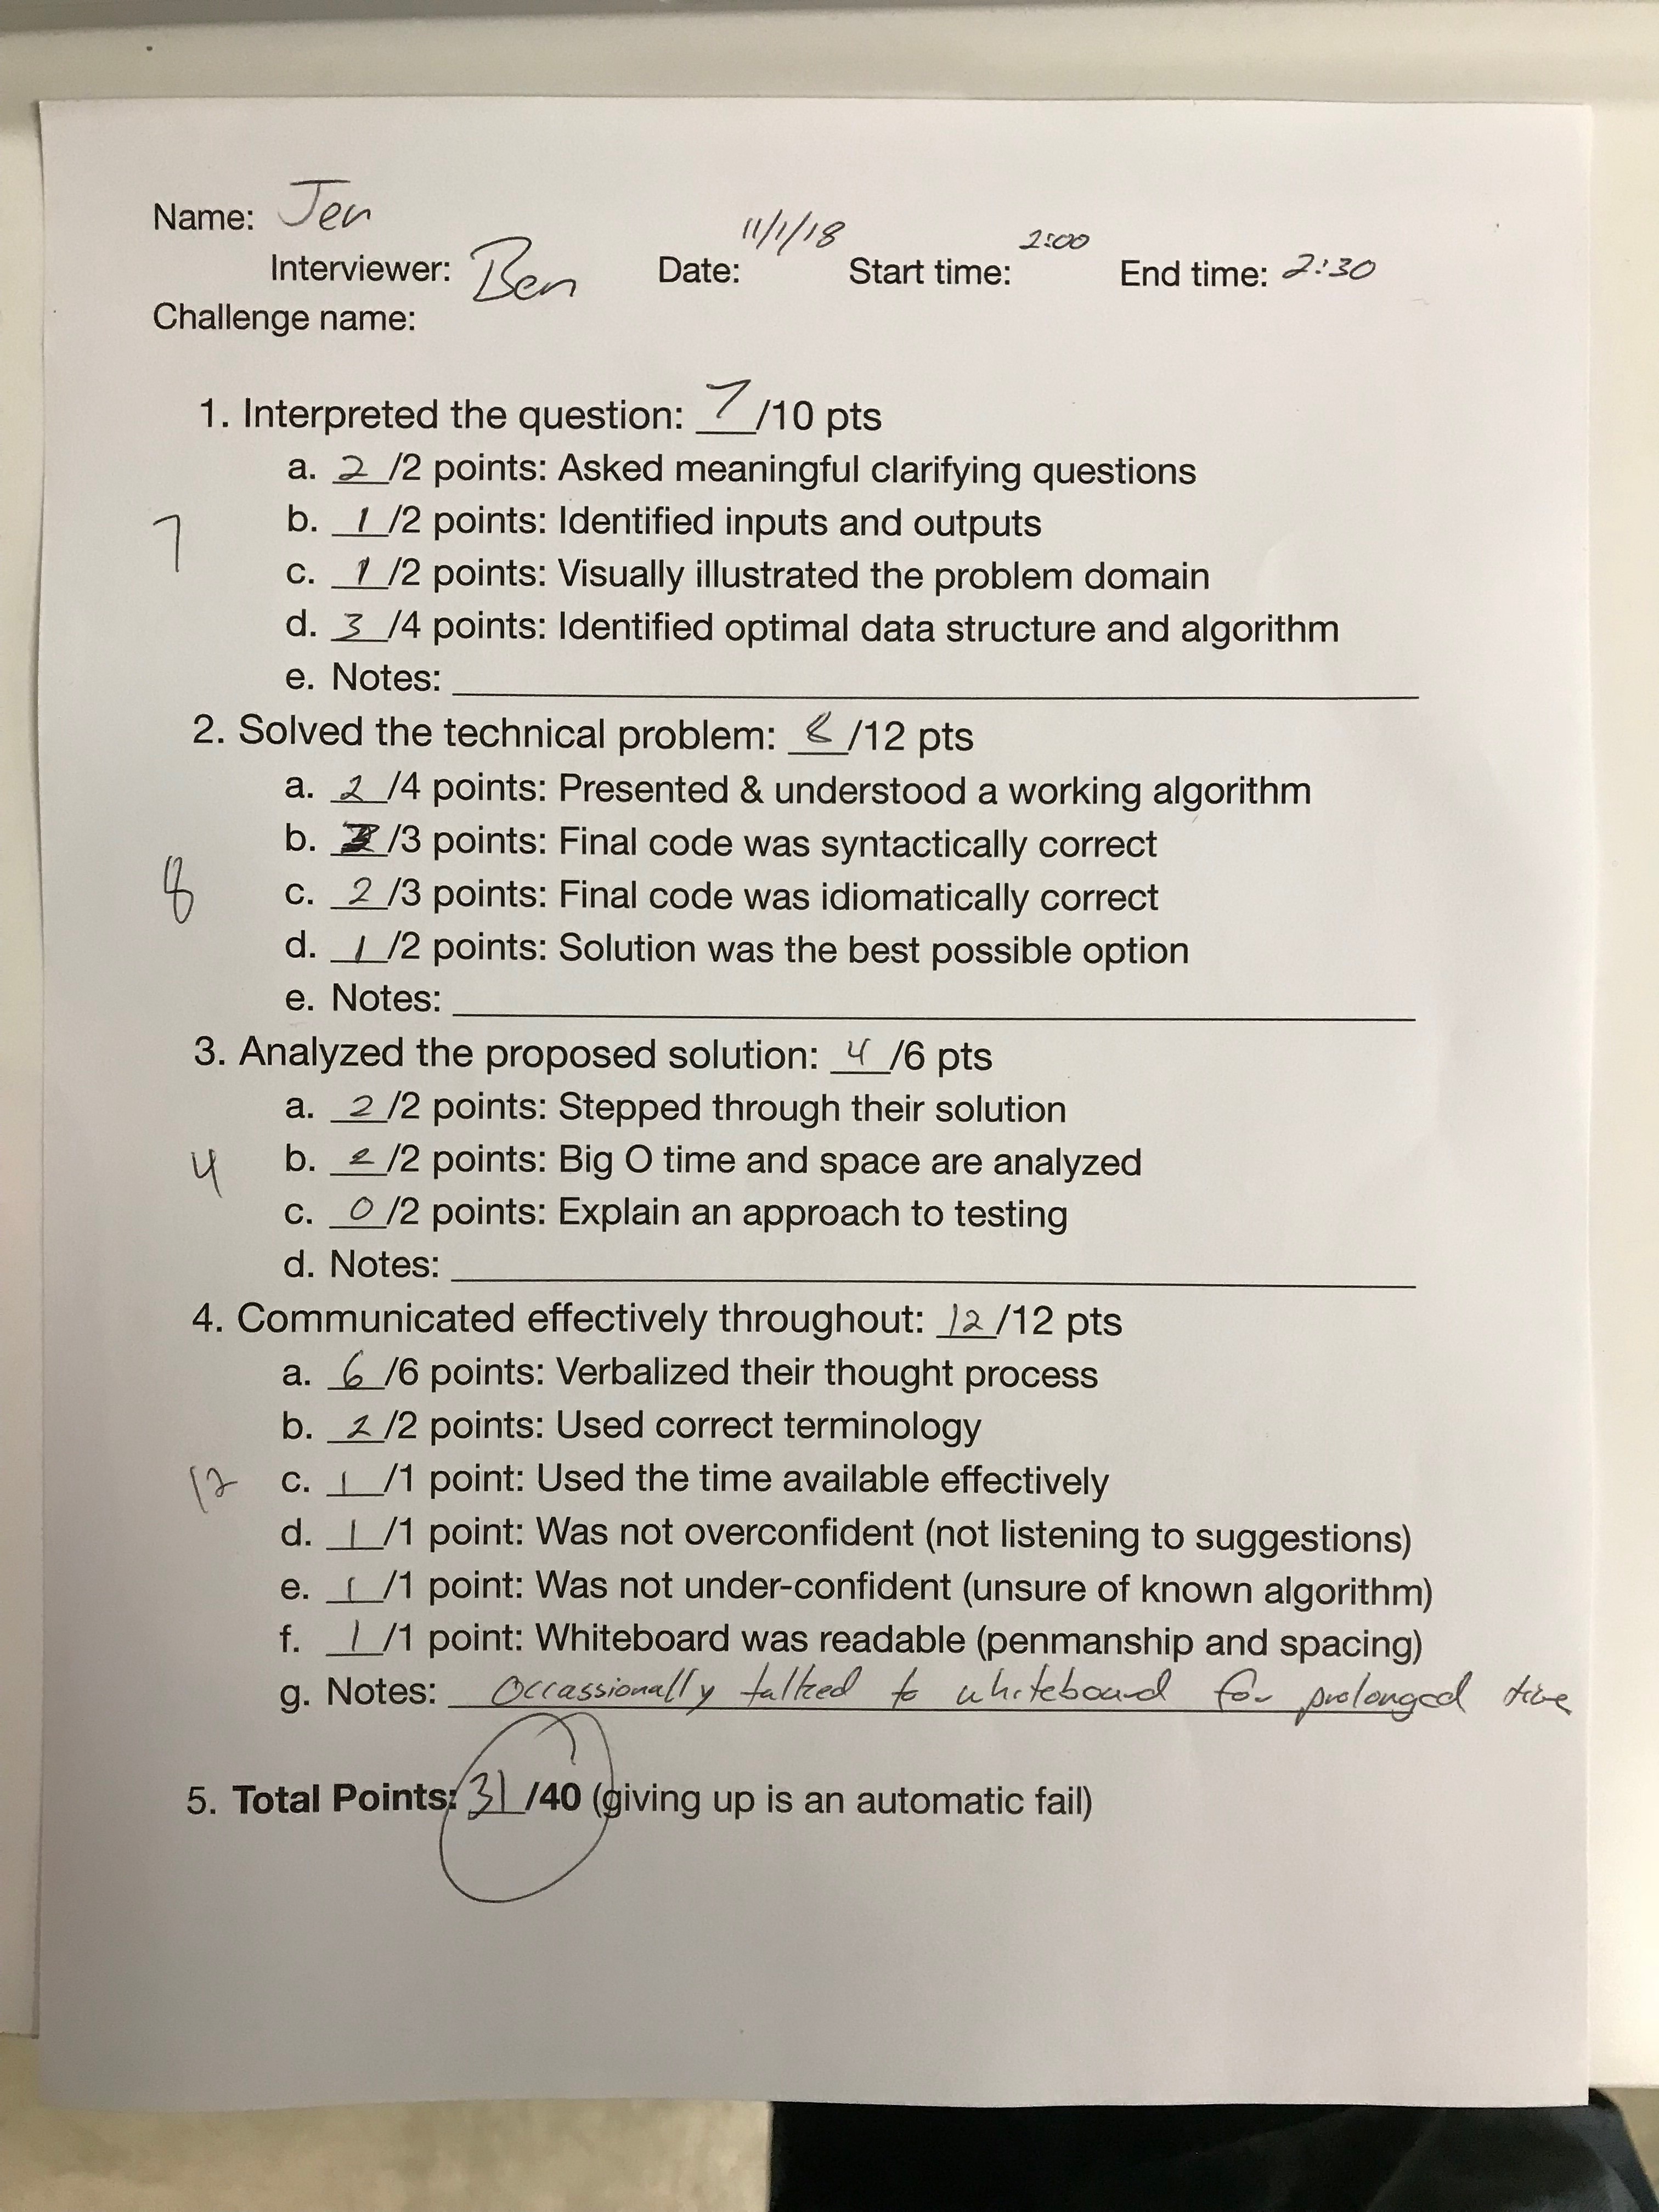 Name: Jen
Interviewer: Ben Date: 11/1/18 Start time: 2:00 End time: 2:30
Challenge name:
1. Interpreted the question: 7/10 pts
a. 2/2 points: Asked meaningful clarifying questions
b. 1/2 points: Identified inputs and outputs
7
c. 1/2 points: Visually illustrated the problem domain
d. 3/4 points: Identified optimal data structure and algorithm
e. Notes:
2. Solved the technical problem: 8/12 pts
a. 2/4 points: Presented & understood a working algorithm
b. /3 points: Final code was syntactically correct
8
c. 2/3 points: Final code was idiomatically correct
d. 1/2 points: Solution was the best possible option
e. Notes:
3. Analyzed the proposed solution: 4/6 pts
a. 2/2 points: Stepped through their solution
4
b. 2/2 points: Big O time and space are analyzed
c. 0/2 points: Explain an approach to testing
d. Notes:
4. Communicated effectively throughout: 12/12 pts
a. 6/6 points: Verbalized their thought process
b. 2/2 points: Used correct terminology
12
c. 1/1 point: Used the time available effectively
d. 1/1 point: Was not overconfident (not listening to suggestions)
e. 1/1 point: Was not under-confident (unsure of known algorithm)
f. 1/1 point: Whiteboard was readable (penmanship and spacing)
g. Notes: Occassionally talked to whiteboard for prolonged time
5. Total Points: 31/40 (giving up is an automatic fail)